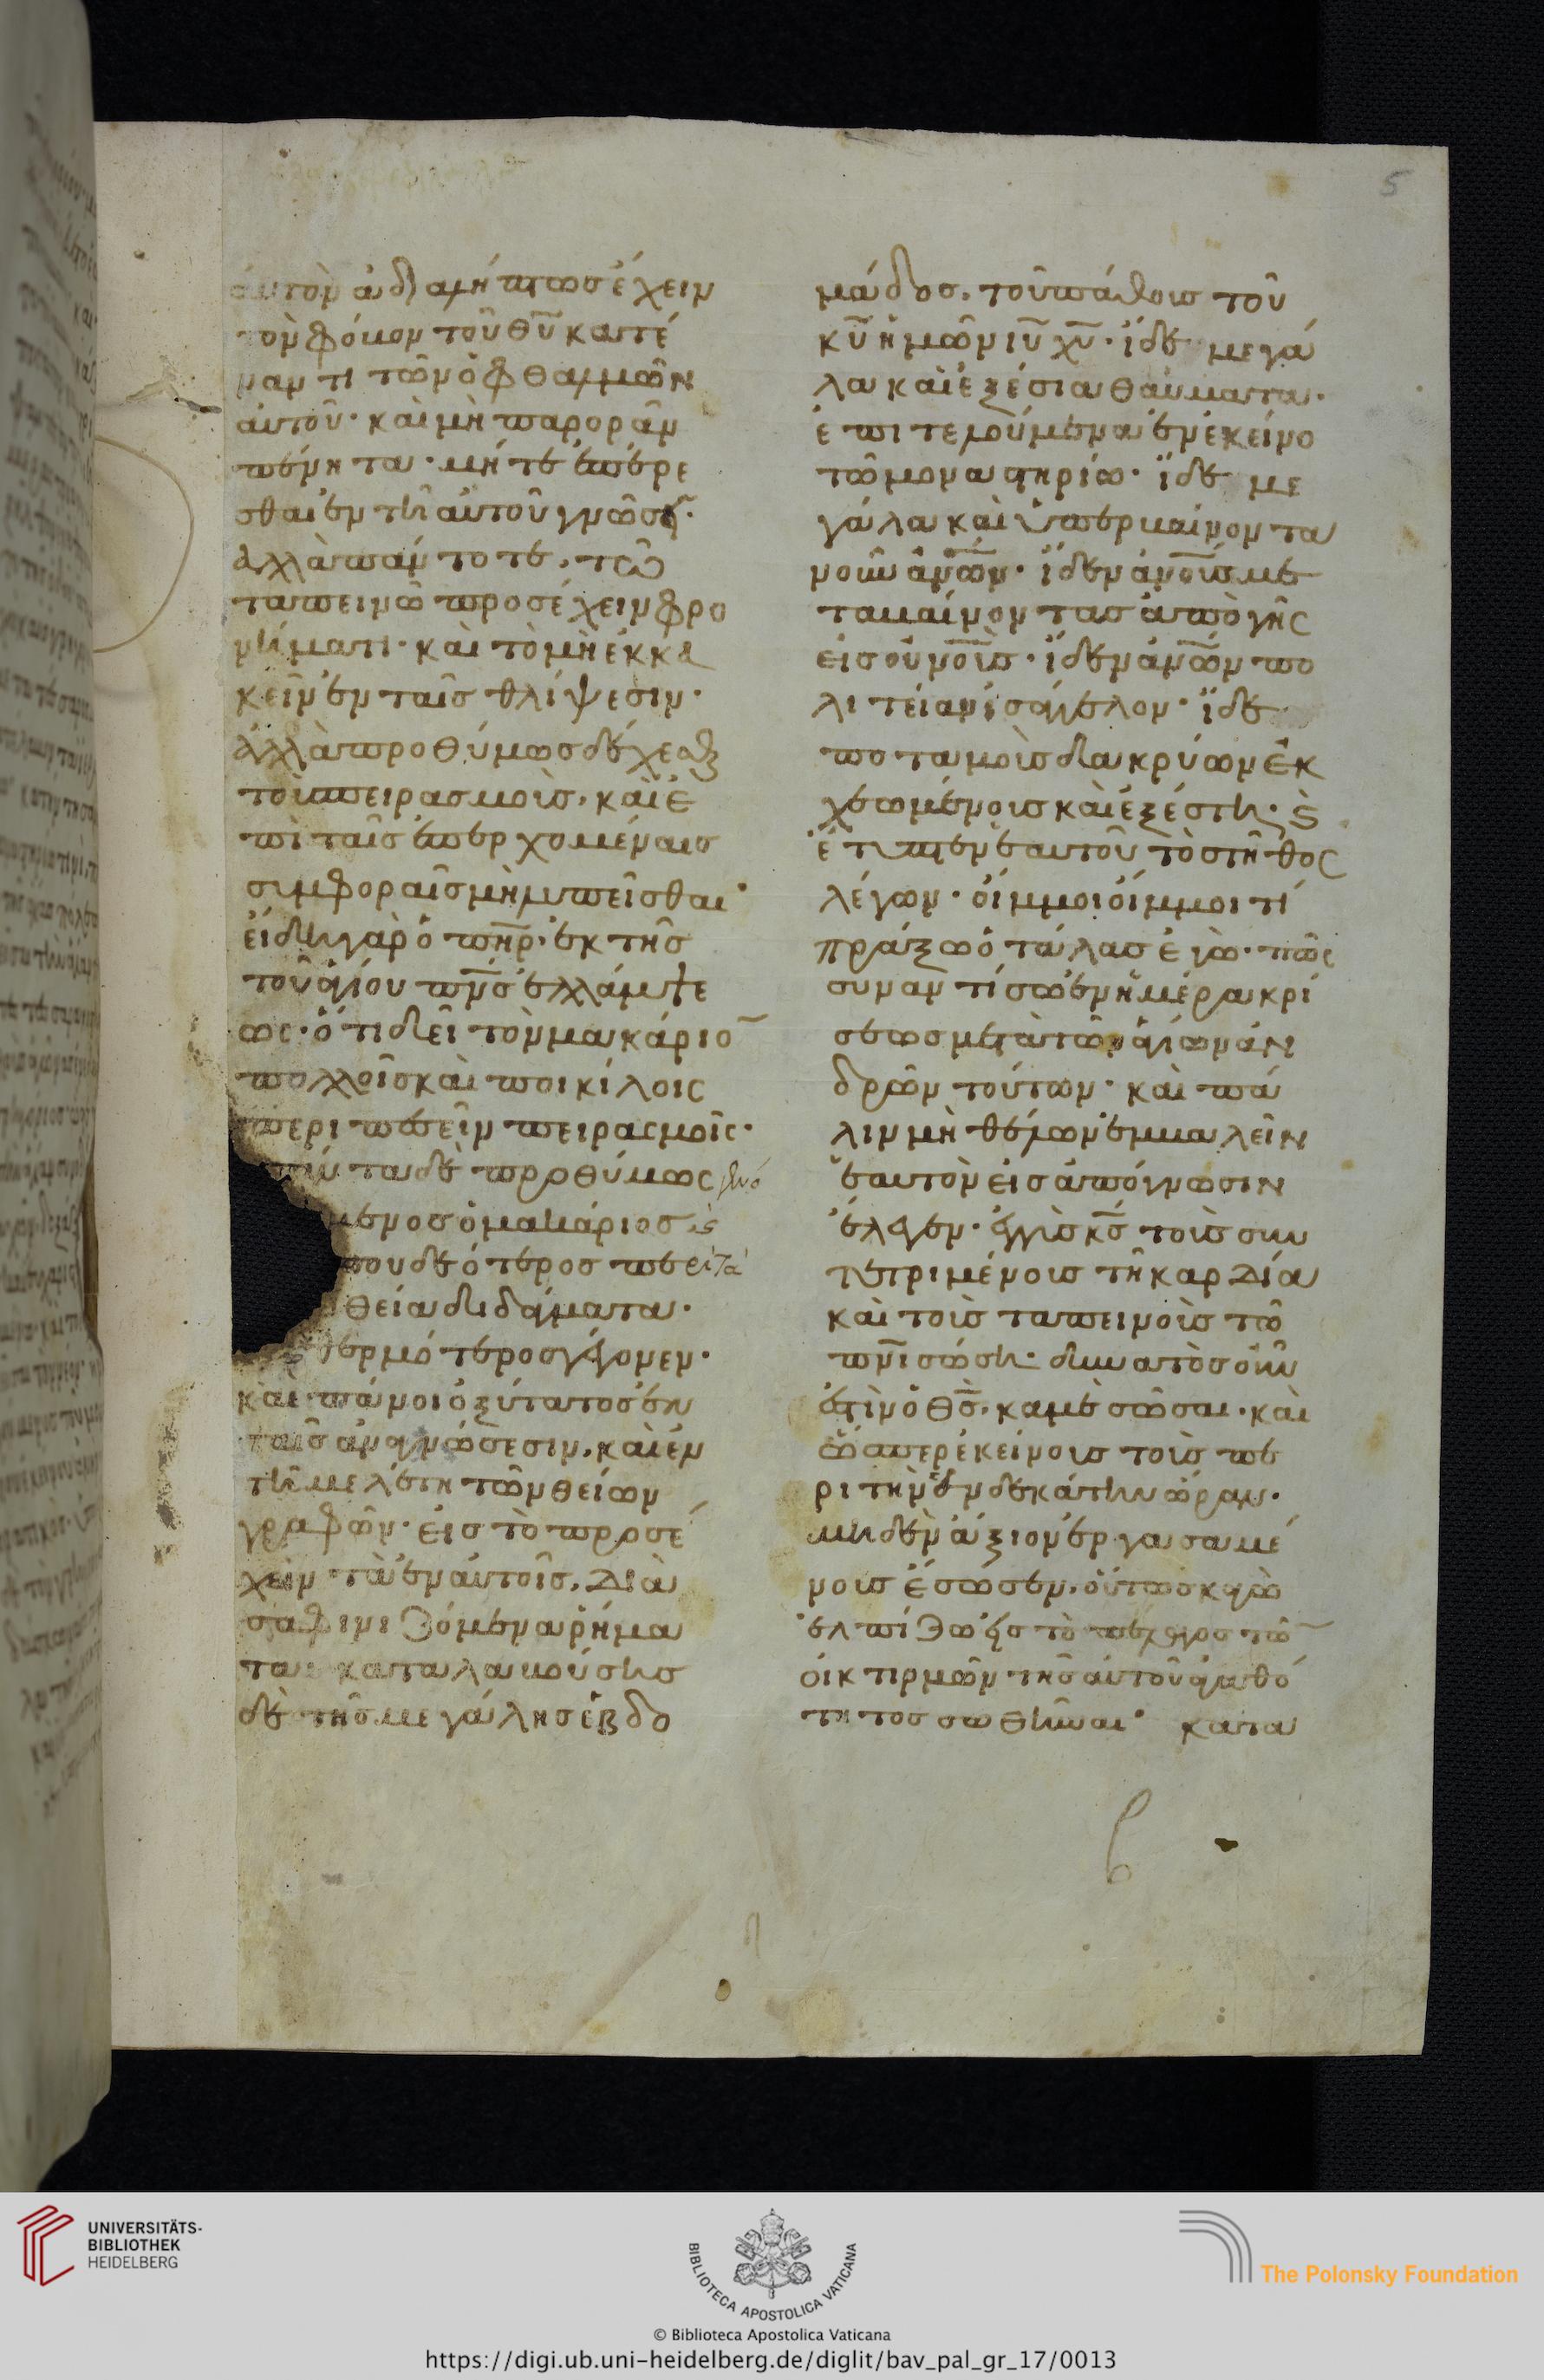 5
αὐτὸν ἀδιαλήπτως ἔχειν
τὸν φόβον τοῦ θυ κατέ
ναντι τῶν ὀφθαλμῶν
αὐτοῦ· καὶ μὴ παρορᾶν
πένητα· μήτε ἐπέρε
σθαι ἐν τῆ αὐτοῦ γνώσει·
ἀλλὰ πάντοτε, τῶ
ταπεινῶ προσέχειν φρο
νήματι· καὶ τὸ μὴ ἐκκα
κεῖν ἐν ταῖς θλίψεσιν·
ἀλλὰ προθύμως δέχεσθαι
τοὺς πειρασμοὺς, καὶ ἐ
πὶ ταῖς ἐπερχομέναις
συμφοραῖς μὴ λυπεῖσθαι·
εἴδη γὰρ ὁ πηρ· ἐκ τῆς
τοῦ ἁγίου πνς ἐλλάμψε
ως· ὅτι δεῖ τὸν μακάριο
πολλοῖς καὶ ποικίλοις
περιπεσεῖν πειρασμοῖς·
ταῦτα δὲ προθύμως δεχό
μενος ὁ μακάριος καὶ
σπουδεότερος πε εἰς τὰ
θεῖα διδάγματα·
θερμότερος γέγονεν·
καὶ πάνοι ὀξύτατος ἐν
ταῖς ἀναγνώσεσιν, καὶ ἐν
τῆ μελέτη τῶν θείων
γραφῶν· εἰς τὸ προσέ
χειν τὰ ἐν αὐτοῖς, διὰ
σαφινιζόμενα ῥήμα
τα· καταλαβούσης
δὲ τῆς μεγάλης ἑβδο
μάδος, τοῦ πάθους τοῦ
κυ ἡμῶν ιυ χυ· ἴδε μεγά
λα καὶ ἐξέσια θαύματα·
ἐπιτελούμενα ἐν ἐκείνο
τῶ μοναστηρίω· ἴδε με
γάλα καὶ ὑπερβαίνοντα
νοῦν ἀνων· ἴδεν ἀνους με
ταβαίνοντας ἀπὸ γῆς
εἰς οὐνοὺς· ἴδεν ἀνων πο
λιτείαν ἰσάγγελον· ἴδε
ποταμοὺς δακρύων ἐκ
χεωμένους καὶ ἐξέστη· καὶ
ἔτυπτεν ἑαυτοῦ τὸ στῆθος
λέγων· οἴμμοι οἴμμοι τί
πράξω ὁ τάλας ἐγὼ· πῶς
συναντίσω ἐν ἡμέρα κρί
σεως μετὰ τῶν ἁγίων ἀν
δρῶν τούτων· καὶ πά
λιν μὴ θέλων ἐμβαλεῖν
ἑαυτὸν εἰς ἀπόγνωσιν
ἔλεγεν· ἐγγὺς κς τοὺς συν
τετριμένους τῆ καρδία
καὶ τοὺς ταπεινοὺς τῶ
πνι σώση· δυνατὸς οὖν
ἐστὶν ὁ θς, καμὲ σῶσαι· καὶ
ὥσπερ ἐκείνους τοὺς πε
ρι τὴν ἑνδεκάτην ὥραν·
μηδὲν ἄξιον ἐργασαμέ
νους ἔσωσεν, οὕτως καγὼ
ἐλπίζω εἰς τὸ πέλαγος τῶ
οἰκτιρμῶν τῆς αὐτοῦ ἀγαθό
τητος σωθῆναι· κατα
UNIVERSITÄTS-
BIBLIOTHEK
HEIDELBERG
BIBLIOTECA APOSTOLICA VATICANA
The Polonsky Foundation
© Biblioteca Apostolica Vaticana
https://digi.ub.uni-heidelberg.de/diglit/bav_pal_gr_17/0013